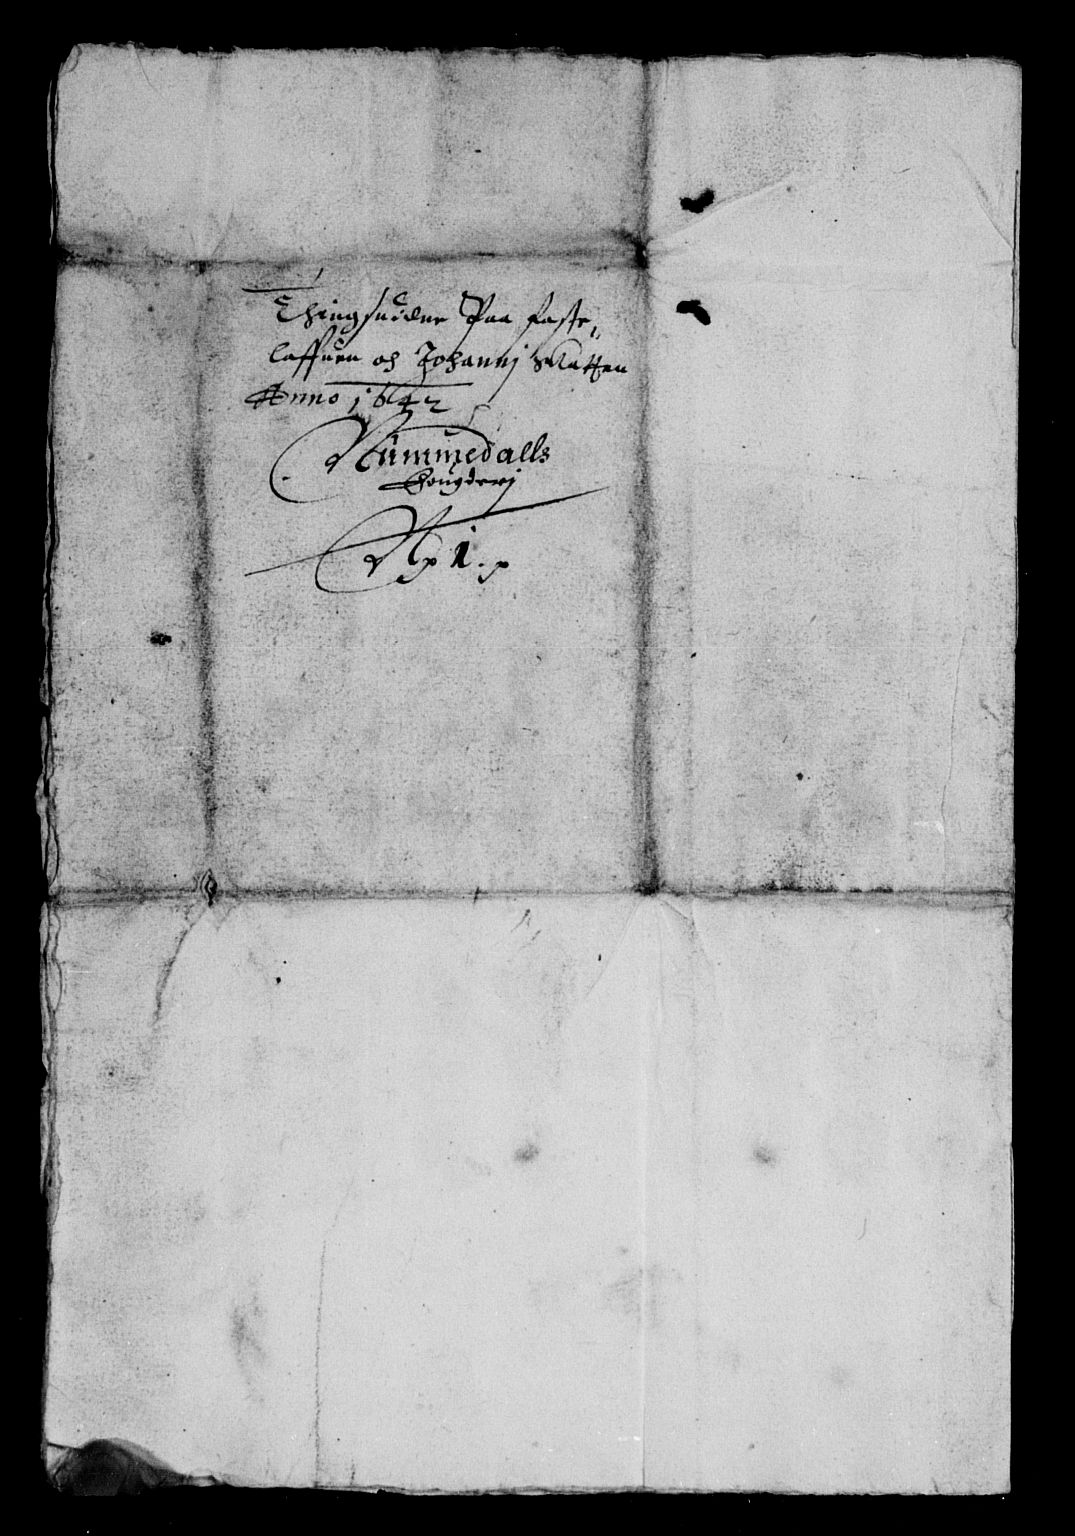 Thingsuidne Paa faste,,
laffuen och Johannj Skatten
Anno 1642
Nummedalls
Fougderj
N 1.